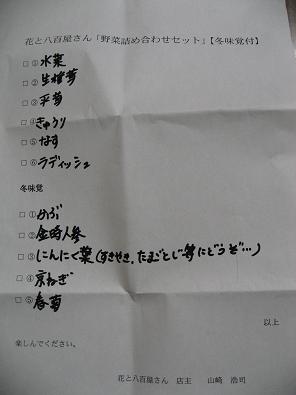 花と八百屋さん「野菜詰め合わせセット」【冬味覚付】
□①水菜
□②生椎茸
□③平茸
□④きゅうり
□⑤なす
□⑥ラディッシュ
冬味覚
□①かぶ
□②金時人参
□③にんにく葉(すきやき、たまごとじ等にどうぞ…)
□④京ねぎ
□⑤春菊
以上
楽しんでください。
花と八百屋さん 店主 山崎 浩司